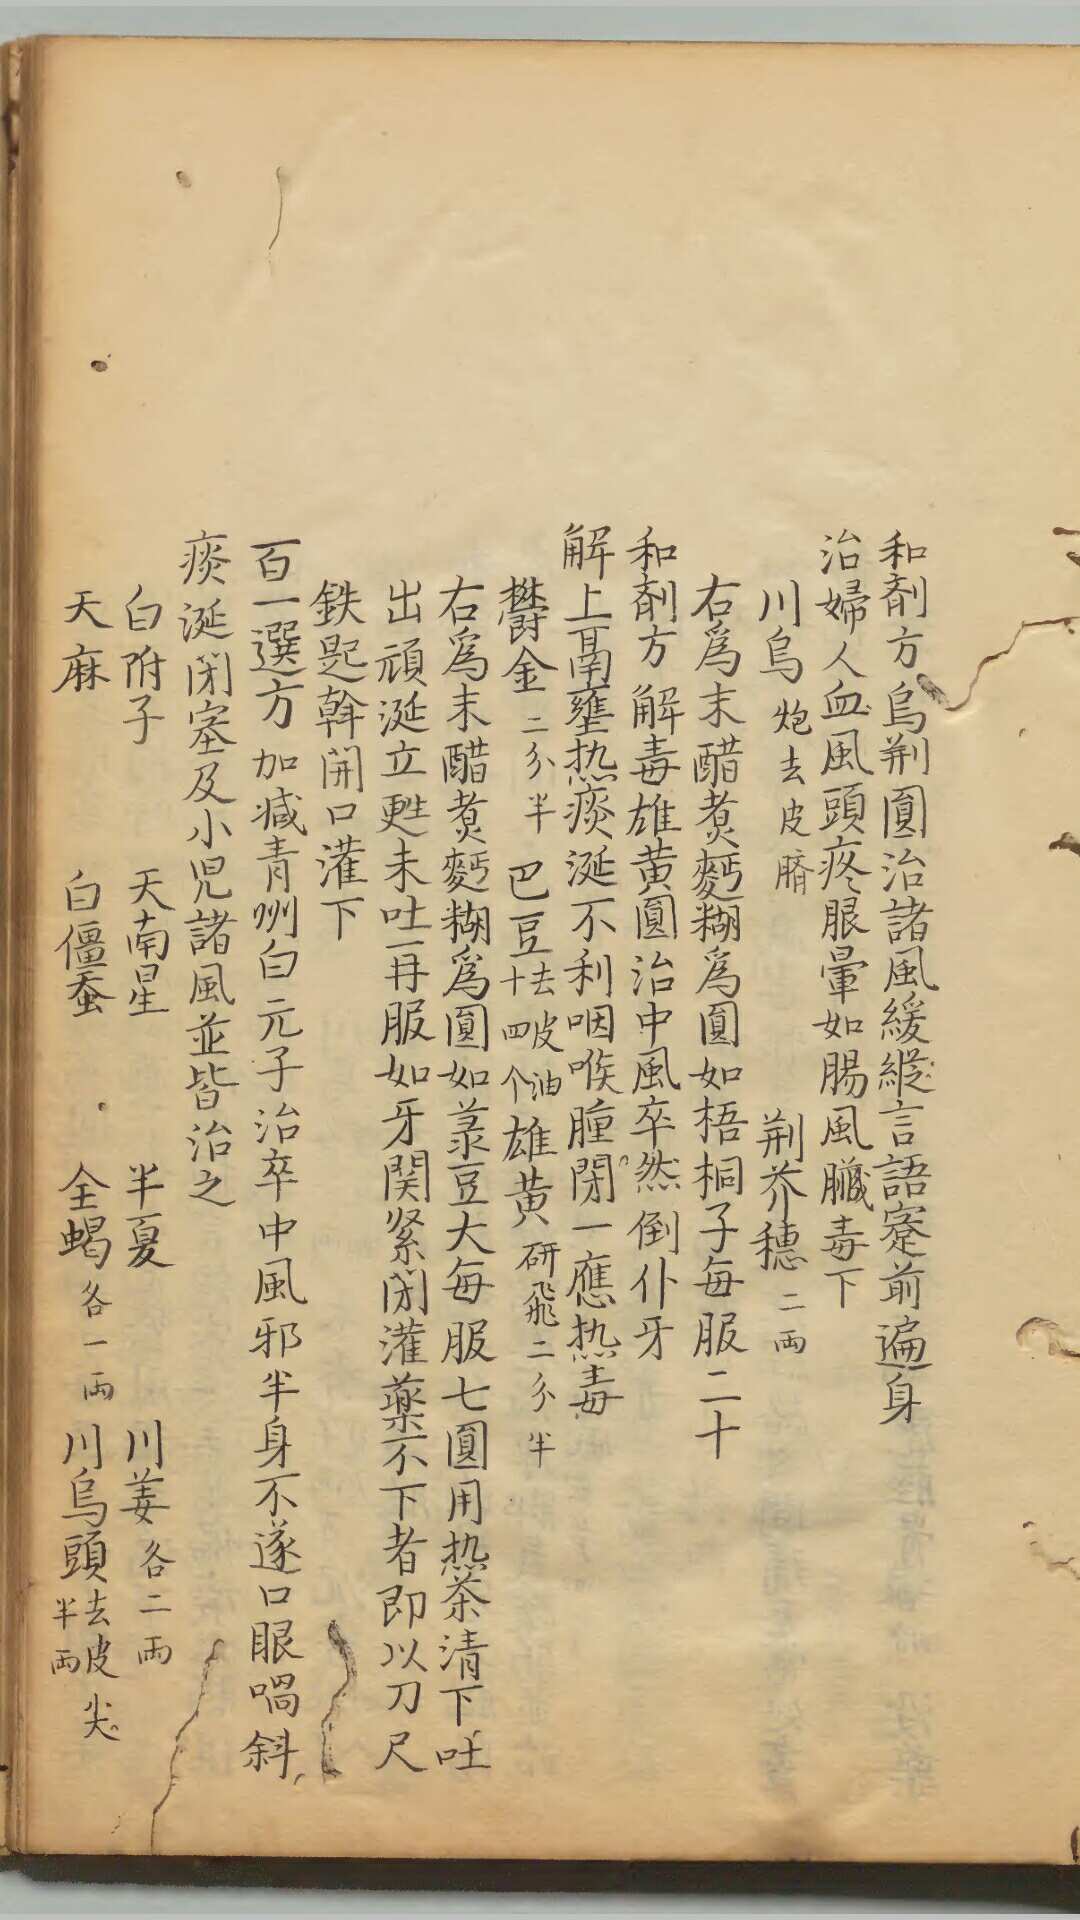 和剤方烏荆圓治諸風緩縦言語蹇前遍身
治婦人血風頭疼眼暈如腸風臓毒下
川烏炮去皮臍 荆芥穂二両
右爲末醋煮麪糊爲圓如梧桐子毎服二十
和剤方解毒雄黄圓治中風卒然倒仆牙
解上鬲壅热痰涎不利咽喉腫閉一應热毒
欝金二分半 巴豆去皮油十四个 雄黄研飛二分半
右爲末醋煮麪糊爲圓如菉豆大毎服七圓用热茶清下吐
出頑涎立甦未吐再服如牙関緊閉灌薬不下者即以刀尺
鉄匙斡開口灌下
百一選方加减青州白元子治卒中風邪半身不遂口眼喎斜
痰涎閉塞及小児諸風並皆治之
白附子 天南星 半夏 川姜各二両
天麻 白僵蚕 全蝎各一両 川烏頭去皮尖半両